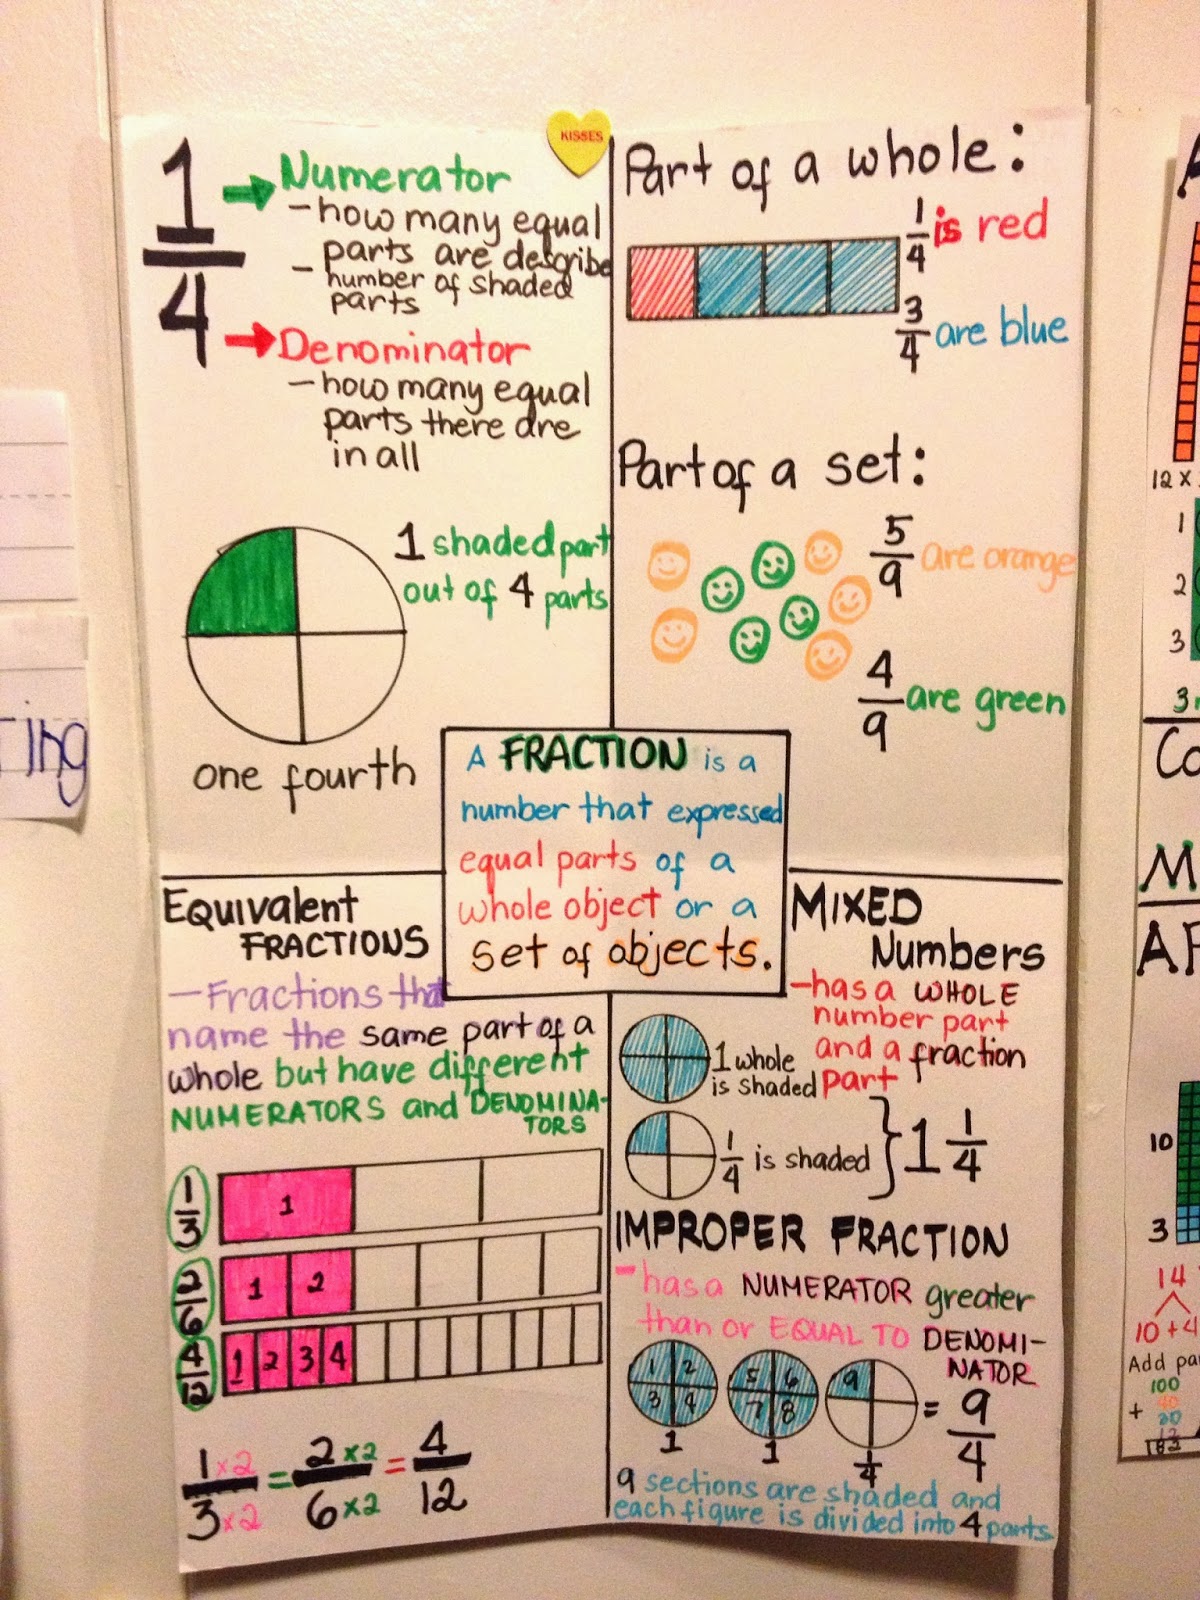 KISSES
1
4
Numerator
- how many equal
parts are describe
- number of shaded
parts
Denominator
- how many equal
parts there are
in all
1 shaded part
out of 4 parts
one fourth
Part of a whole:
1/4 is red
3/4 are blue
Part of a set:
5/9 are orange
4/9 are green
A FRACTION is a
number that expressed
equal parts of a
whole object or a
set of objects.
EQUIVALENT
FRACTIONS
- Fractions that
name the same part of a
whole but have different
NUMERATORS and DENOMINA-
TORS
1/3
1
2/6
1 2
4/12
1 2 3 4
1 x2 / 3 x2 = 2 x2 / 6 x2 = 4/12
MIXED
Numbers
- has a WHOLE
number part
and a fraction
part
1 whole
is shaded
1/4 is shaded } 1 1/4
IMPROPER FRACTION
- has a NUMERATOR greater
than or EQUAL TO DENOMI-
NATOR
1 2 5 6 9
3 4 7 8
= 9/4
1 1 1/4
9 sections are shaded and
each figure is divided into 4 parts.
ring
12 x
1
2
3
Co
M
10
3
14
10 + 4
Add pa
100
+